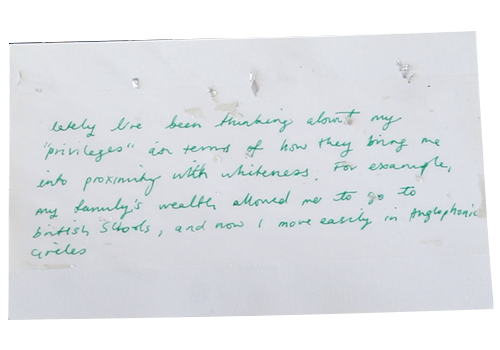 lately I've been thinking about my
"privileges" in terms of how they bring me
into proximity with whiteness. For example,
my family's wealth allowed me to go to
british schools, and now I move easily in Anglophonic
circles